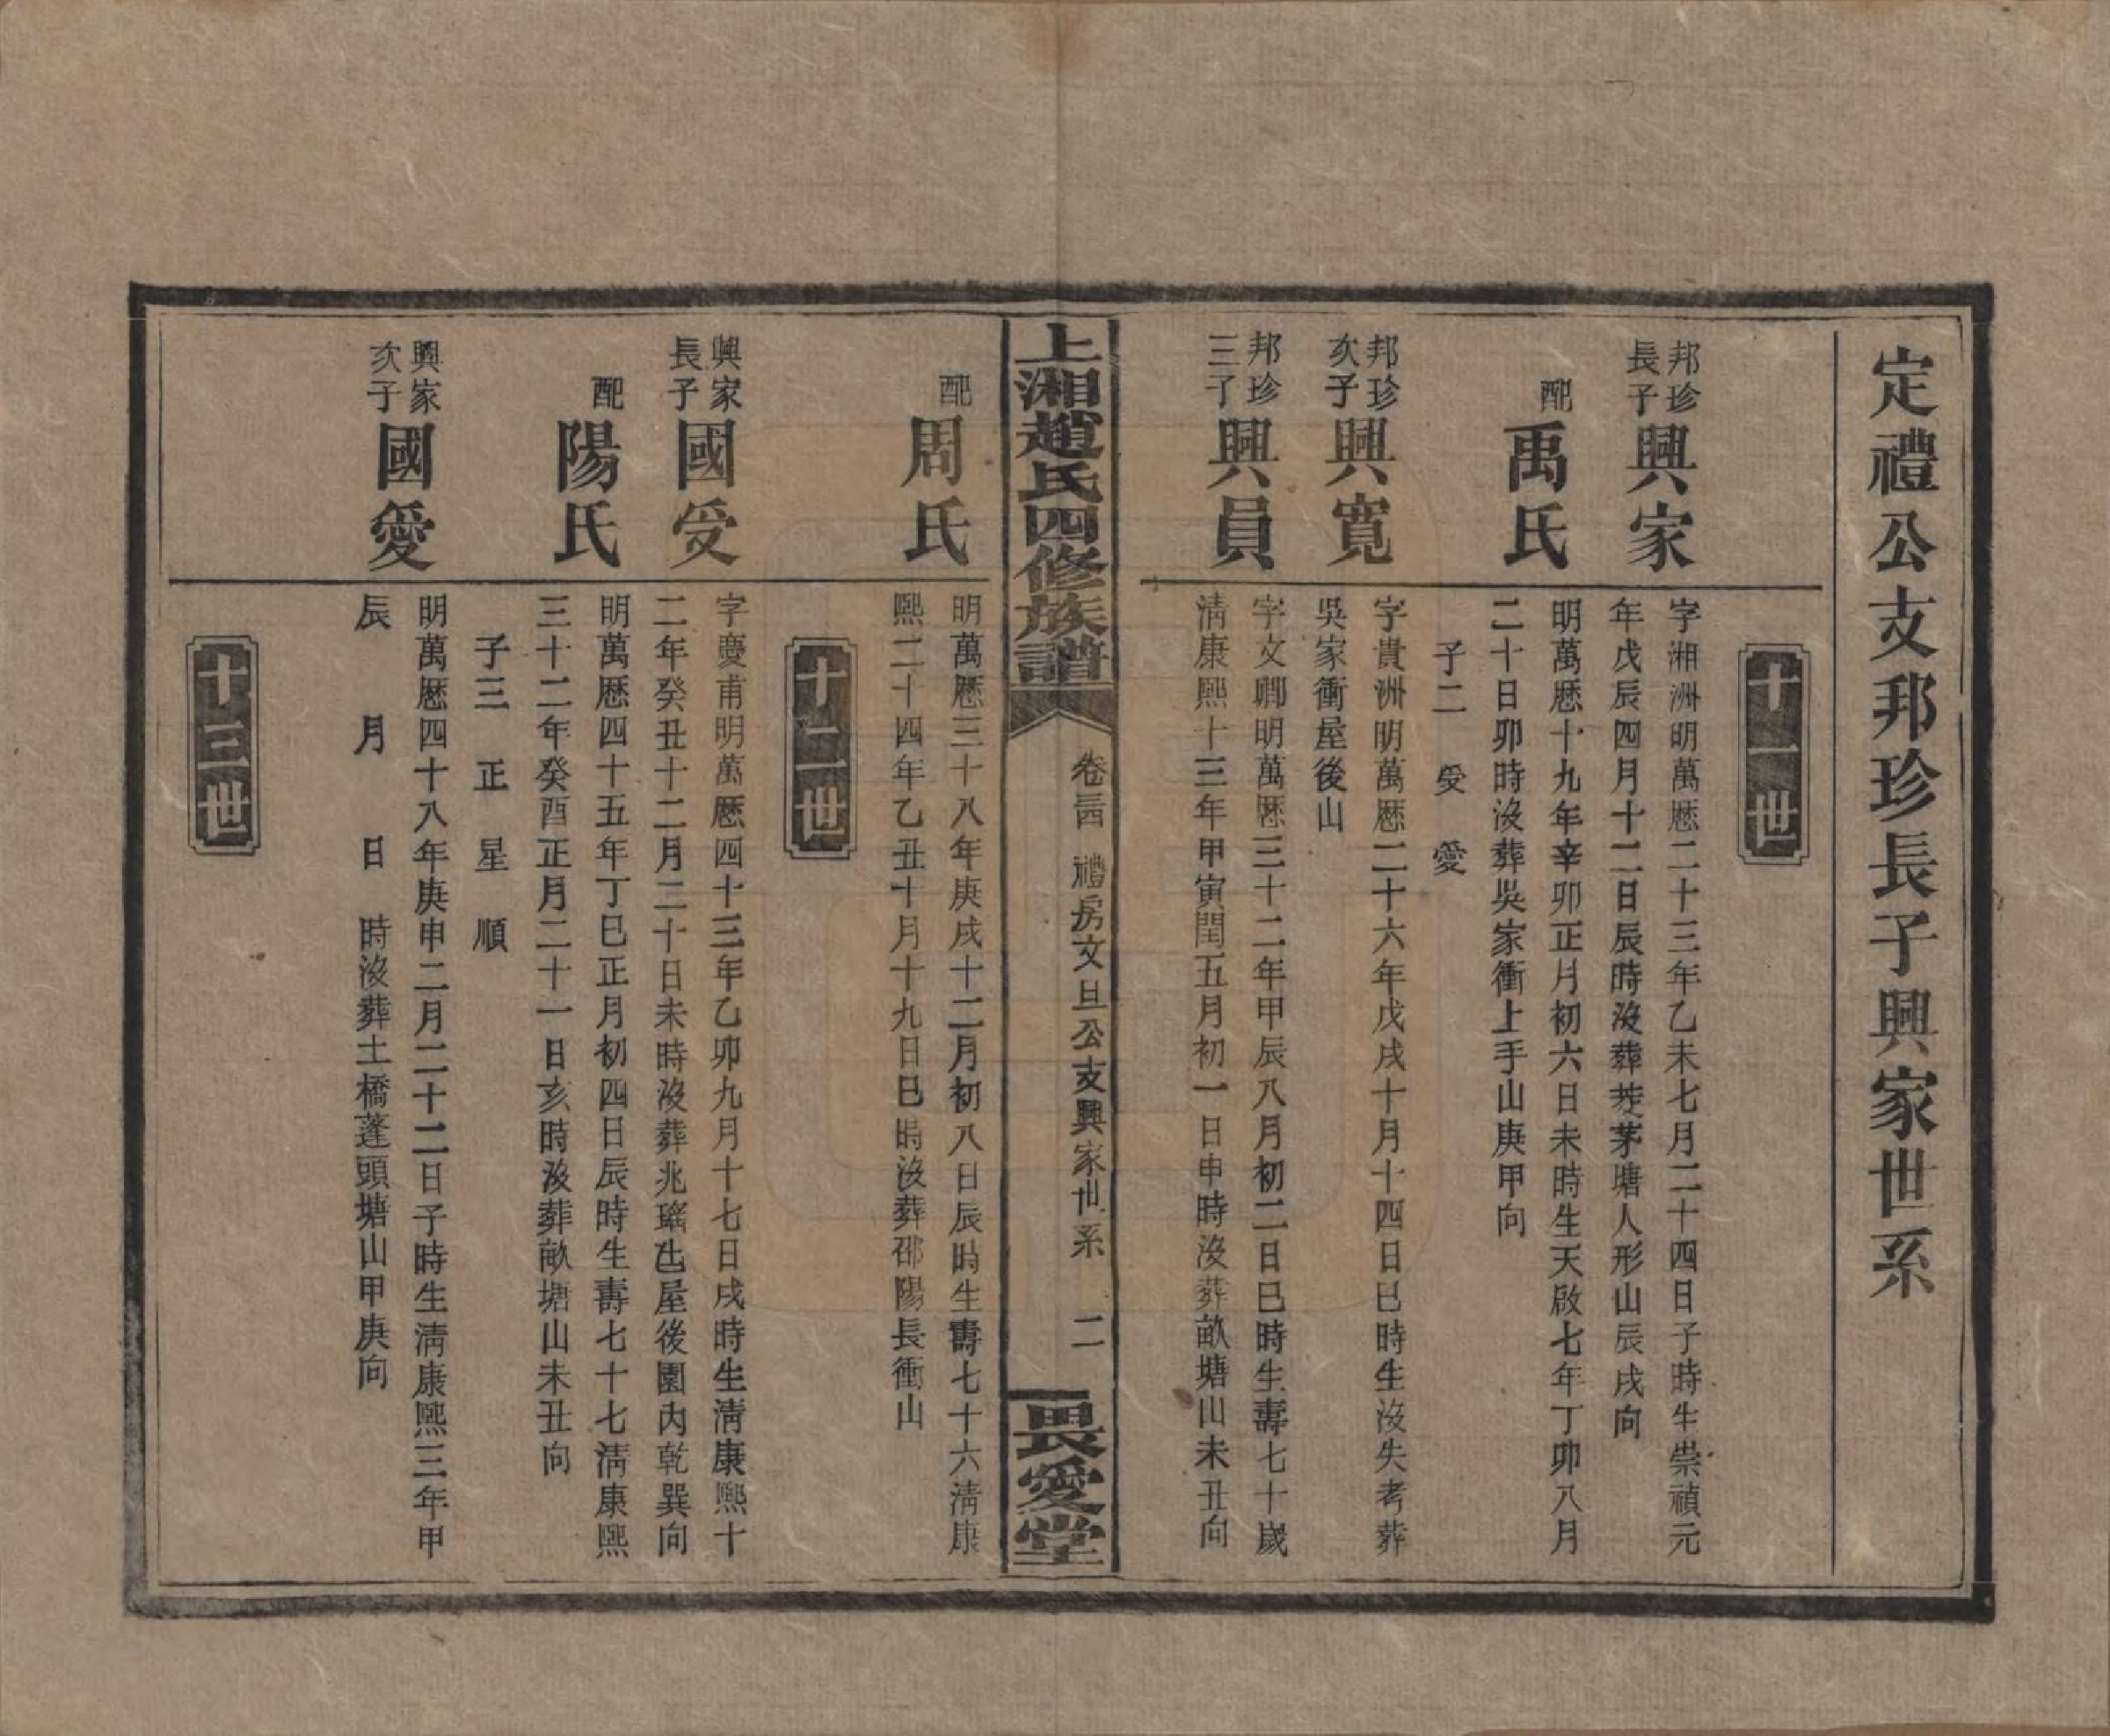 定禮公支邦珍長子興家世系
十一世
邦珍
長子
興家
字湘洲明萬歷二十三年乙未七月二十四日子時生崇禎元
年戊辰四月十二日辰時沒葬茅塘人形山辰戌向
配
禹氏
明萬歷十九年辛卯正月初六日未時生天啟七年丁卯八月
二十日卯時沒葬吳家衝上手山庚甲向
子二 受 愛
邦珍
次子
興寬
字貴洲明萬歷二十六年戊戌十月十四日巳時生沒失考葬
吳家衝屋後山
邦珍
三子
興員
字文卿明萬歷三十二年甲辰八月初二日巳時生壽七十歲
清康熙十三年甲寅閏五月初一日申時沒葬畝塘山未丑向
上湘趙氏四修族譜
卷三四 禮房文旦公支興家世系 二
畏愛堂
配
周氏
明萬歷三十八年庚戌十二月初八日辰時生壽七十六清康
熙二十四年乙丑十月十九日巳時沒葬邵陽長衝山
十二世
興家
長子
國受
字慶甫明萬歷四十三年乙卯九月十七日戌時生清康熙十
二年癸丑十二月二十日未時沒葬兆瑞屋後園內乾巽向
配
陽氏
明萬歷四十五年丁巳正月初四日辰時生壽七十七清康熙
三十二年癸酉正月二十一日亥時沒葬畝塘山未丑向
子三 正 星 順
興家
次子
國愛
明萬歷四十八年庚申二月二十二日子時生清康熙三年甲
辰 月 日 時沒葬土橋蓬頭塘山甲庚向
十三世